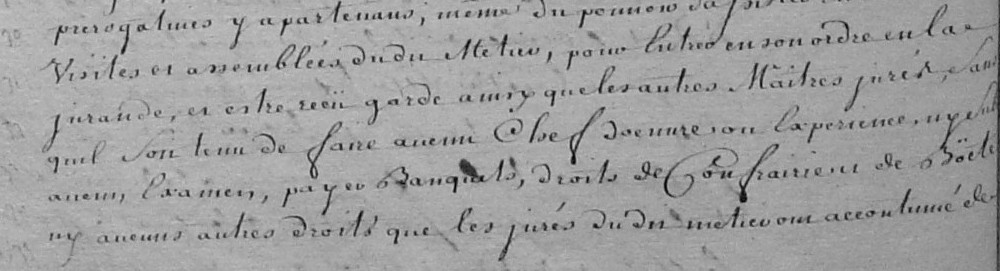 prerogatives y apartenans, même du pouvoir d'assister
Visites et assemblées dudit Metier, pour Entrer en son ordre en la
jurande, et estre reçü garde ainsy que les autres Maîtres jurés, Sans
quil Soit tenü de faire aucun Chef doeuvre ou Experience, ny subir
aucun Examen, payer Banquets, droits de Confrairie ni de Böete
ny aucuns autres droits que les jurés dudit metier ont accoutumé de